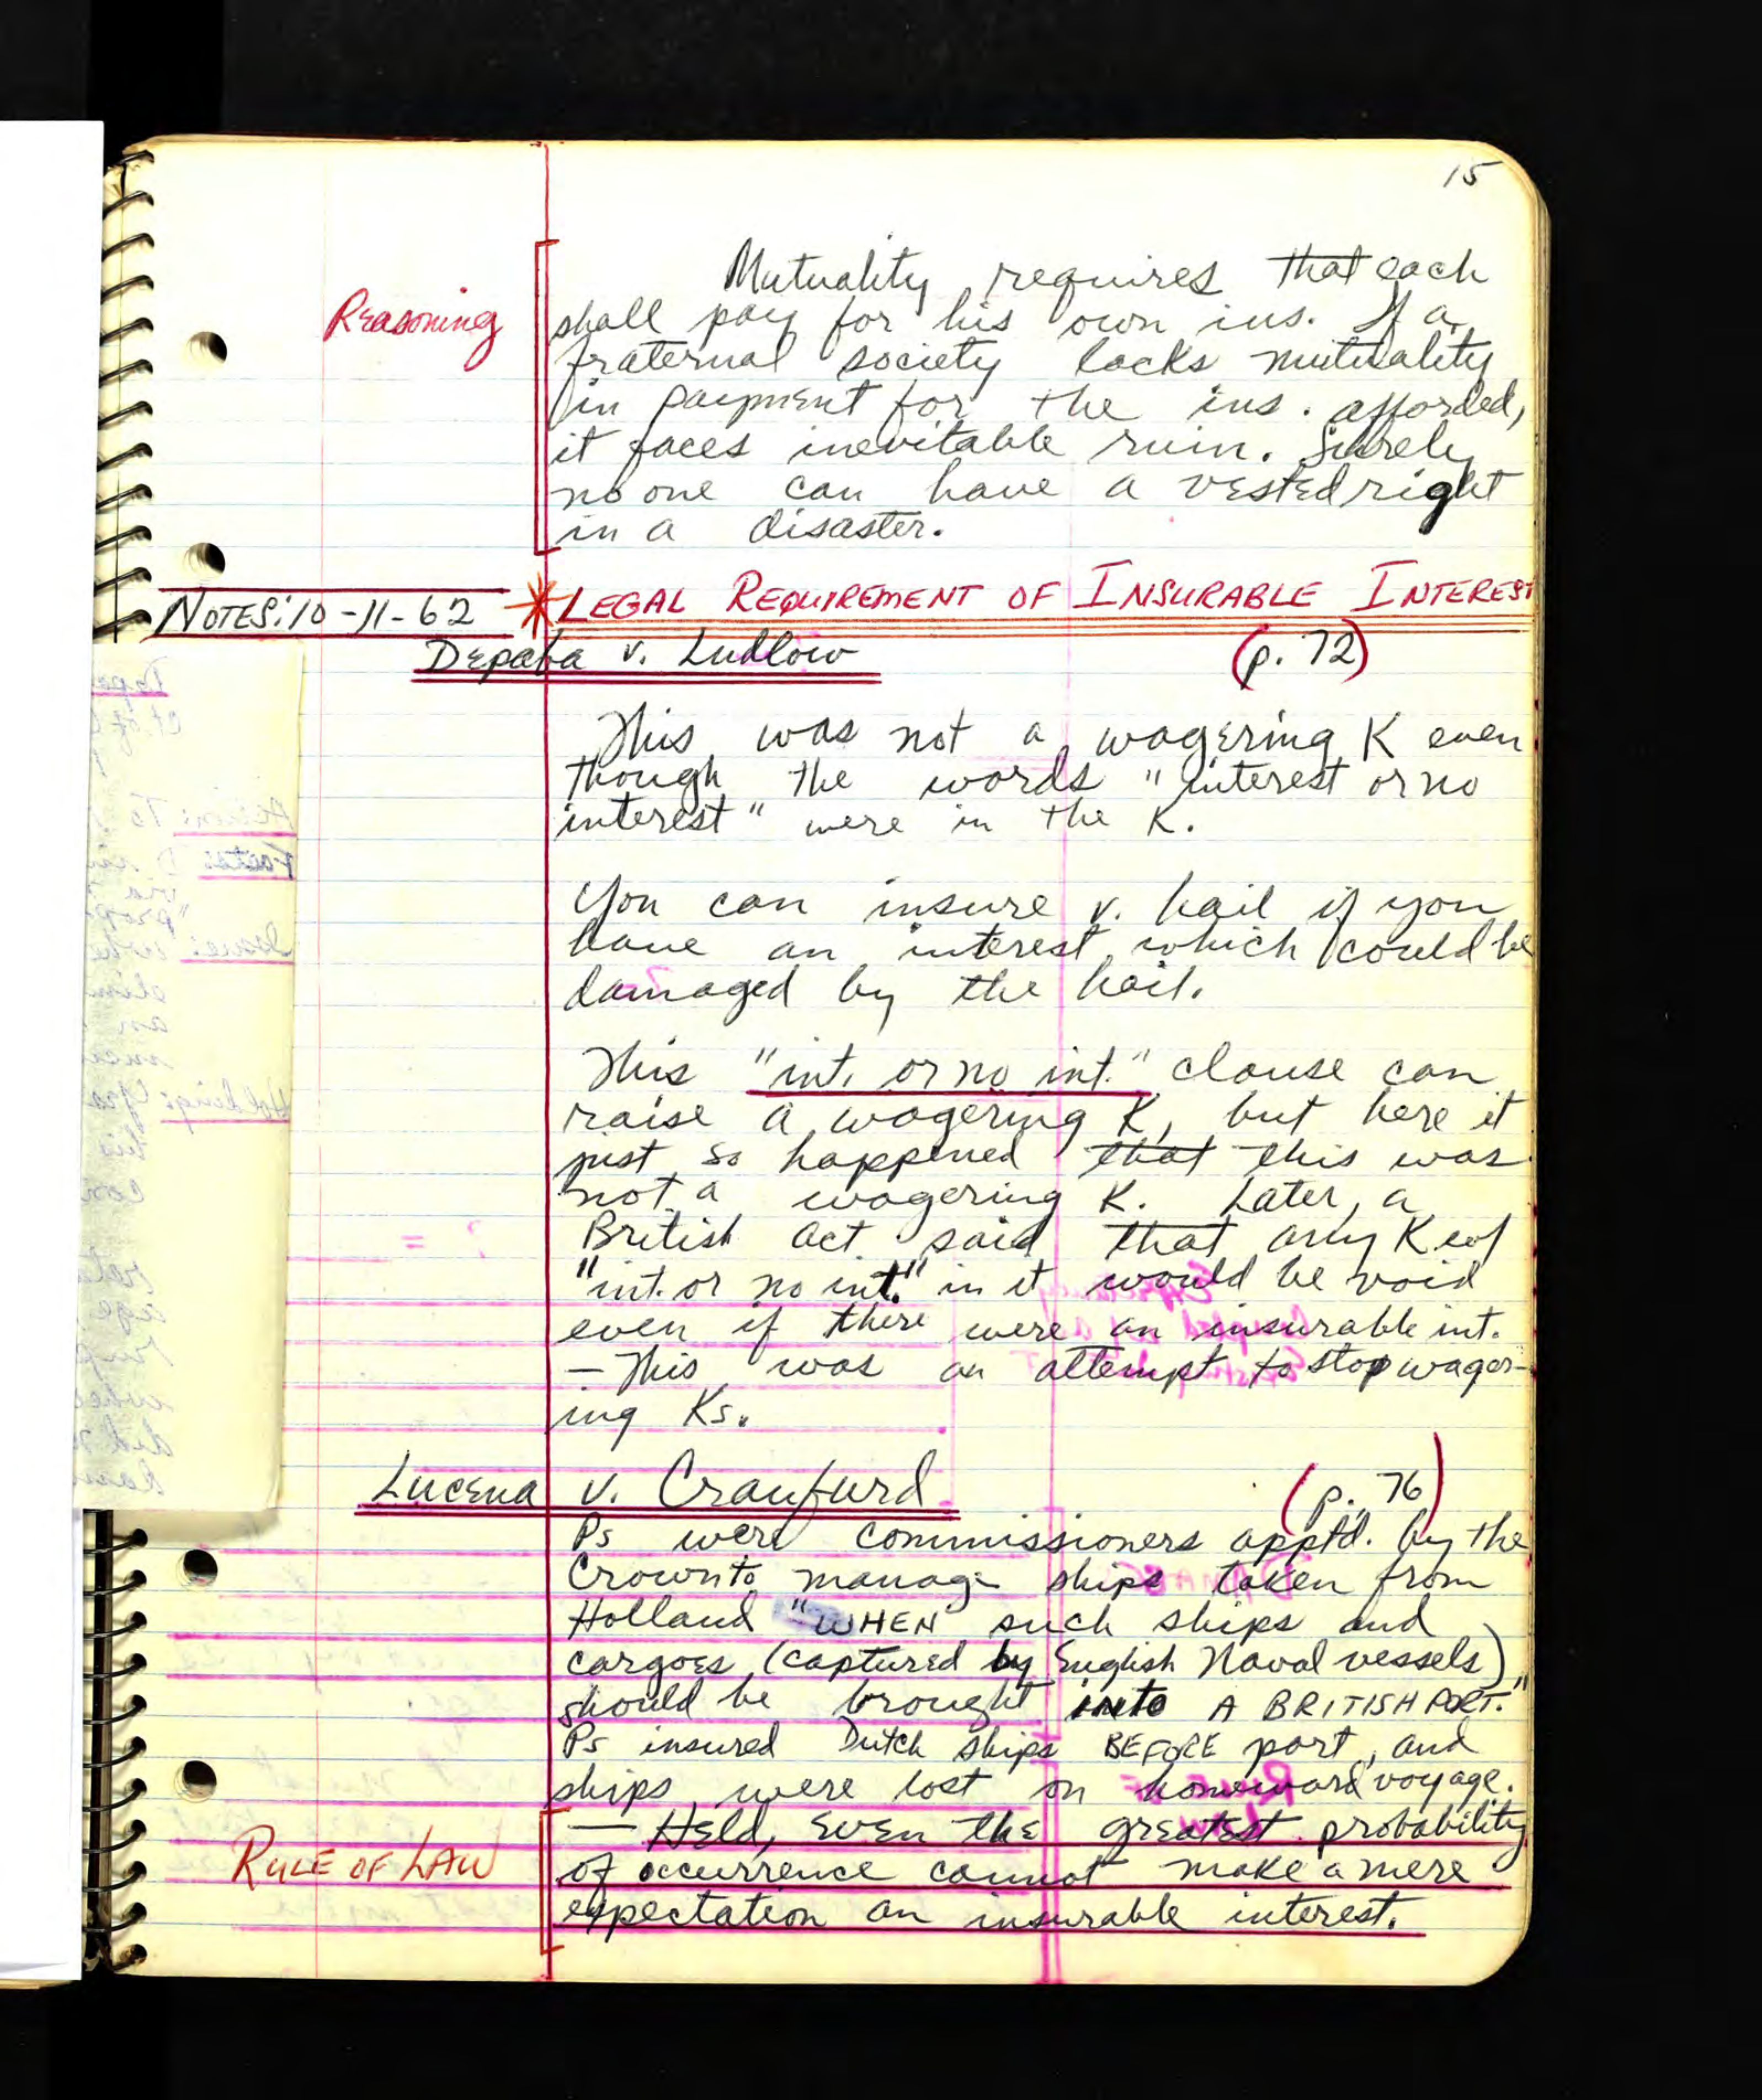 15
Mutuality requires that each
Reasoning shall pay for his own ins. If a
fraternal society lacks mutuality
in payment for the ins. afforded,
it faces inevitable ruin. Surely
no one can have a vested right
in a disaster.
NOTES: 10-11-62 * LEGAL REQUIREMENT OF INSURABLE INTEREST
Depaba v. Ludlow (p. 72)
This was not a wagering K even
though the words "interest or no
interest" were in the K.
You can insure v. hail if you
have an interest which could be
damaged by the hail.
This "int. or no int." clause can
raise a wagering K, but here it
just so happened that this was
not a wagering K. Later, a
British act said that any K w/
"int. or no int." in it would be void
even if there were an insurable int.
— This was an attempt to stop wager-
ing Ks.
Lucena v. Craufurd (p. 76)
Ps were commissioners apptd. by the
Crown to manage ships taken from
Holland "WHEN such ships and
cargoes (captured by English Naval vessels)
should be brought into A BRITISH PORT."
Ps insured Dutch ships BEFORE port, and
ships were lost on homeward voyage.
— Held, even the greatest probability
RULE OF LAW of occurrence cannot make a mere
expectation an insurable interest.